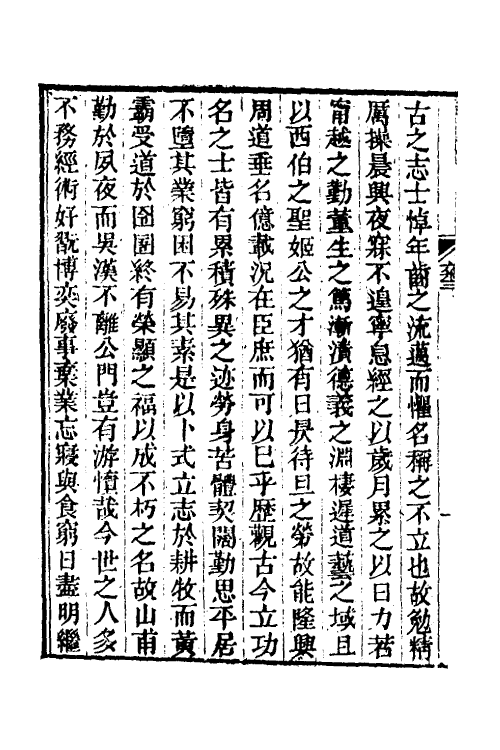 古之志士悼年齒之流邁而懼名稱之不立也故勉精
厲操晨興夜寐不遑寧息經之以歲月累之以日力若
甯越之勤董生之篤漸漬德義之淵棲遲道藝之域且
以西伯之聖姬公之才猶有日昃待旦之勞故能隆興
周道垂名億載況在臣庶而可以已乎歷觀古今立功
名之士皆有累積殊異之迹勞身苦體契闊勤思平居
不墮其業窮困不易其素是以卜式立志於耕牧而黃
霸受道於囹圄終有榮顯之福以成不朽之名故山甫
勤於夙夜而吳漢不離公門豈有游惰哉今世之人多
不務經術好翫博奕廢事棄業忘寢與食窮日盡明繼